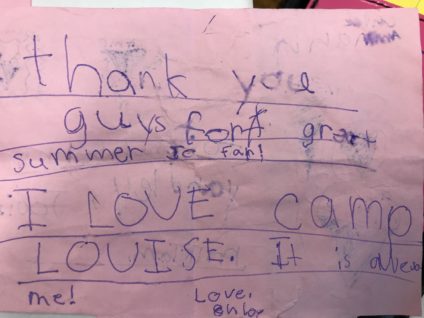 thank you
guys for A great
summer so far!
I LOVE camp
LOUISE. It is
me!
Love,
Chloe